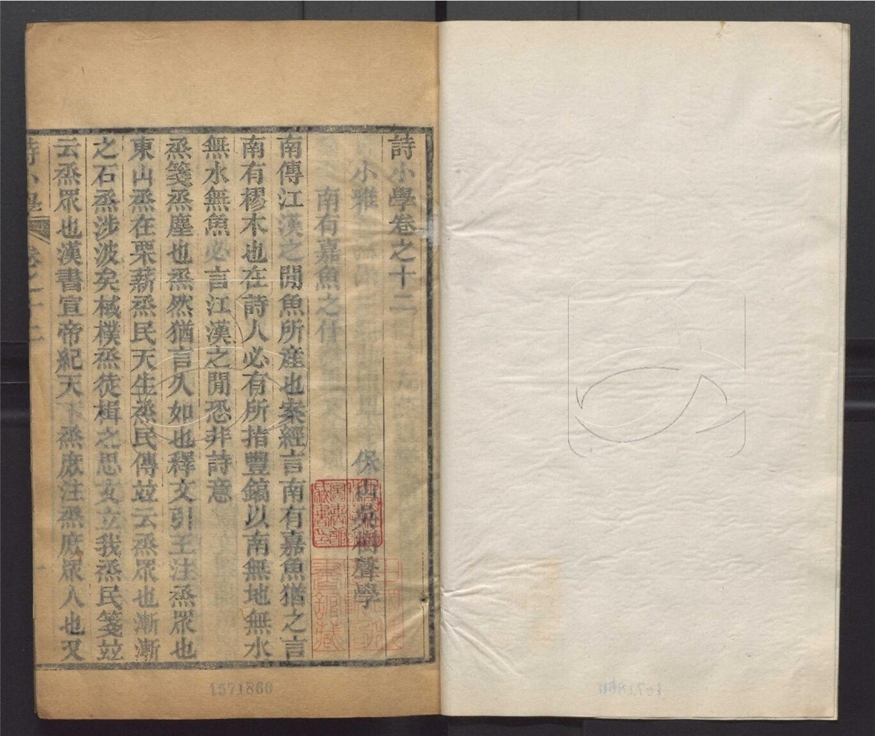 詩小學卷之十二
小雅
保山吳樹聲學
南有嘉魚之什
南傳江漢之閒魚所産也案經言南有嘉魚猶之言
南有樛木也在詩人必有所指豐鎬以南無地無水
無水無魚必言江漢之閒恐非詩意
烝箋烝塵也烝然猶言久如也釋文引王注烝眾也
東山烝在栗薪烝民天生烝民傳竝云烝眾也漸漸
之石烝涉波矣棫樸烝徒楫之思文立我烝民箋竝
云烝眾也漢書宣帝紀天下烝庶注烝庶眾人也又
詩小學 卷之十二 一
1571860